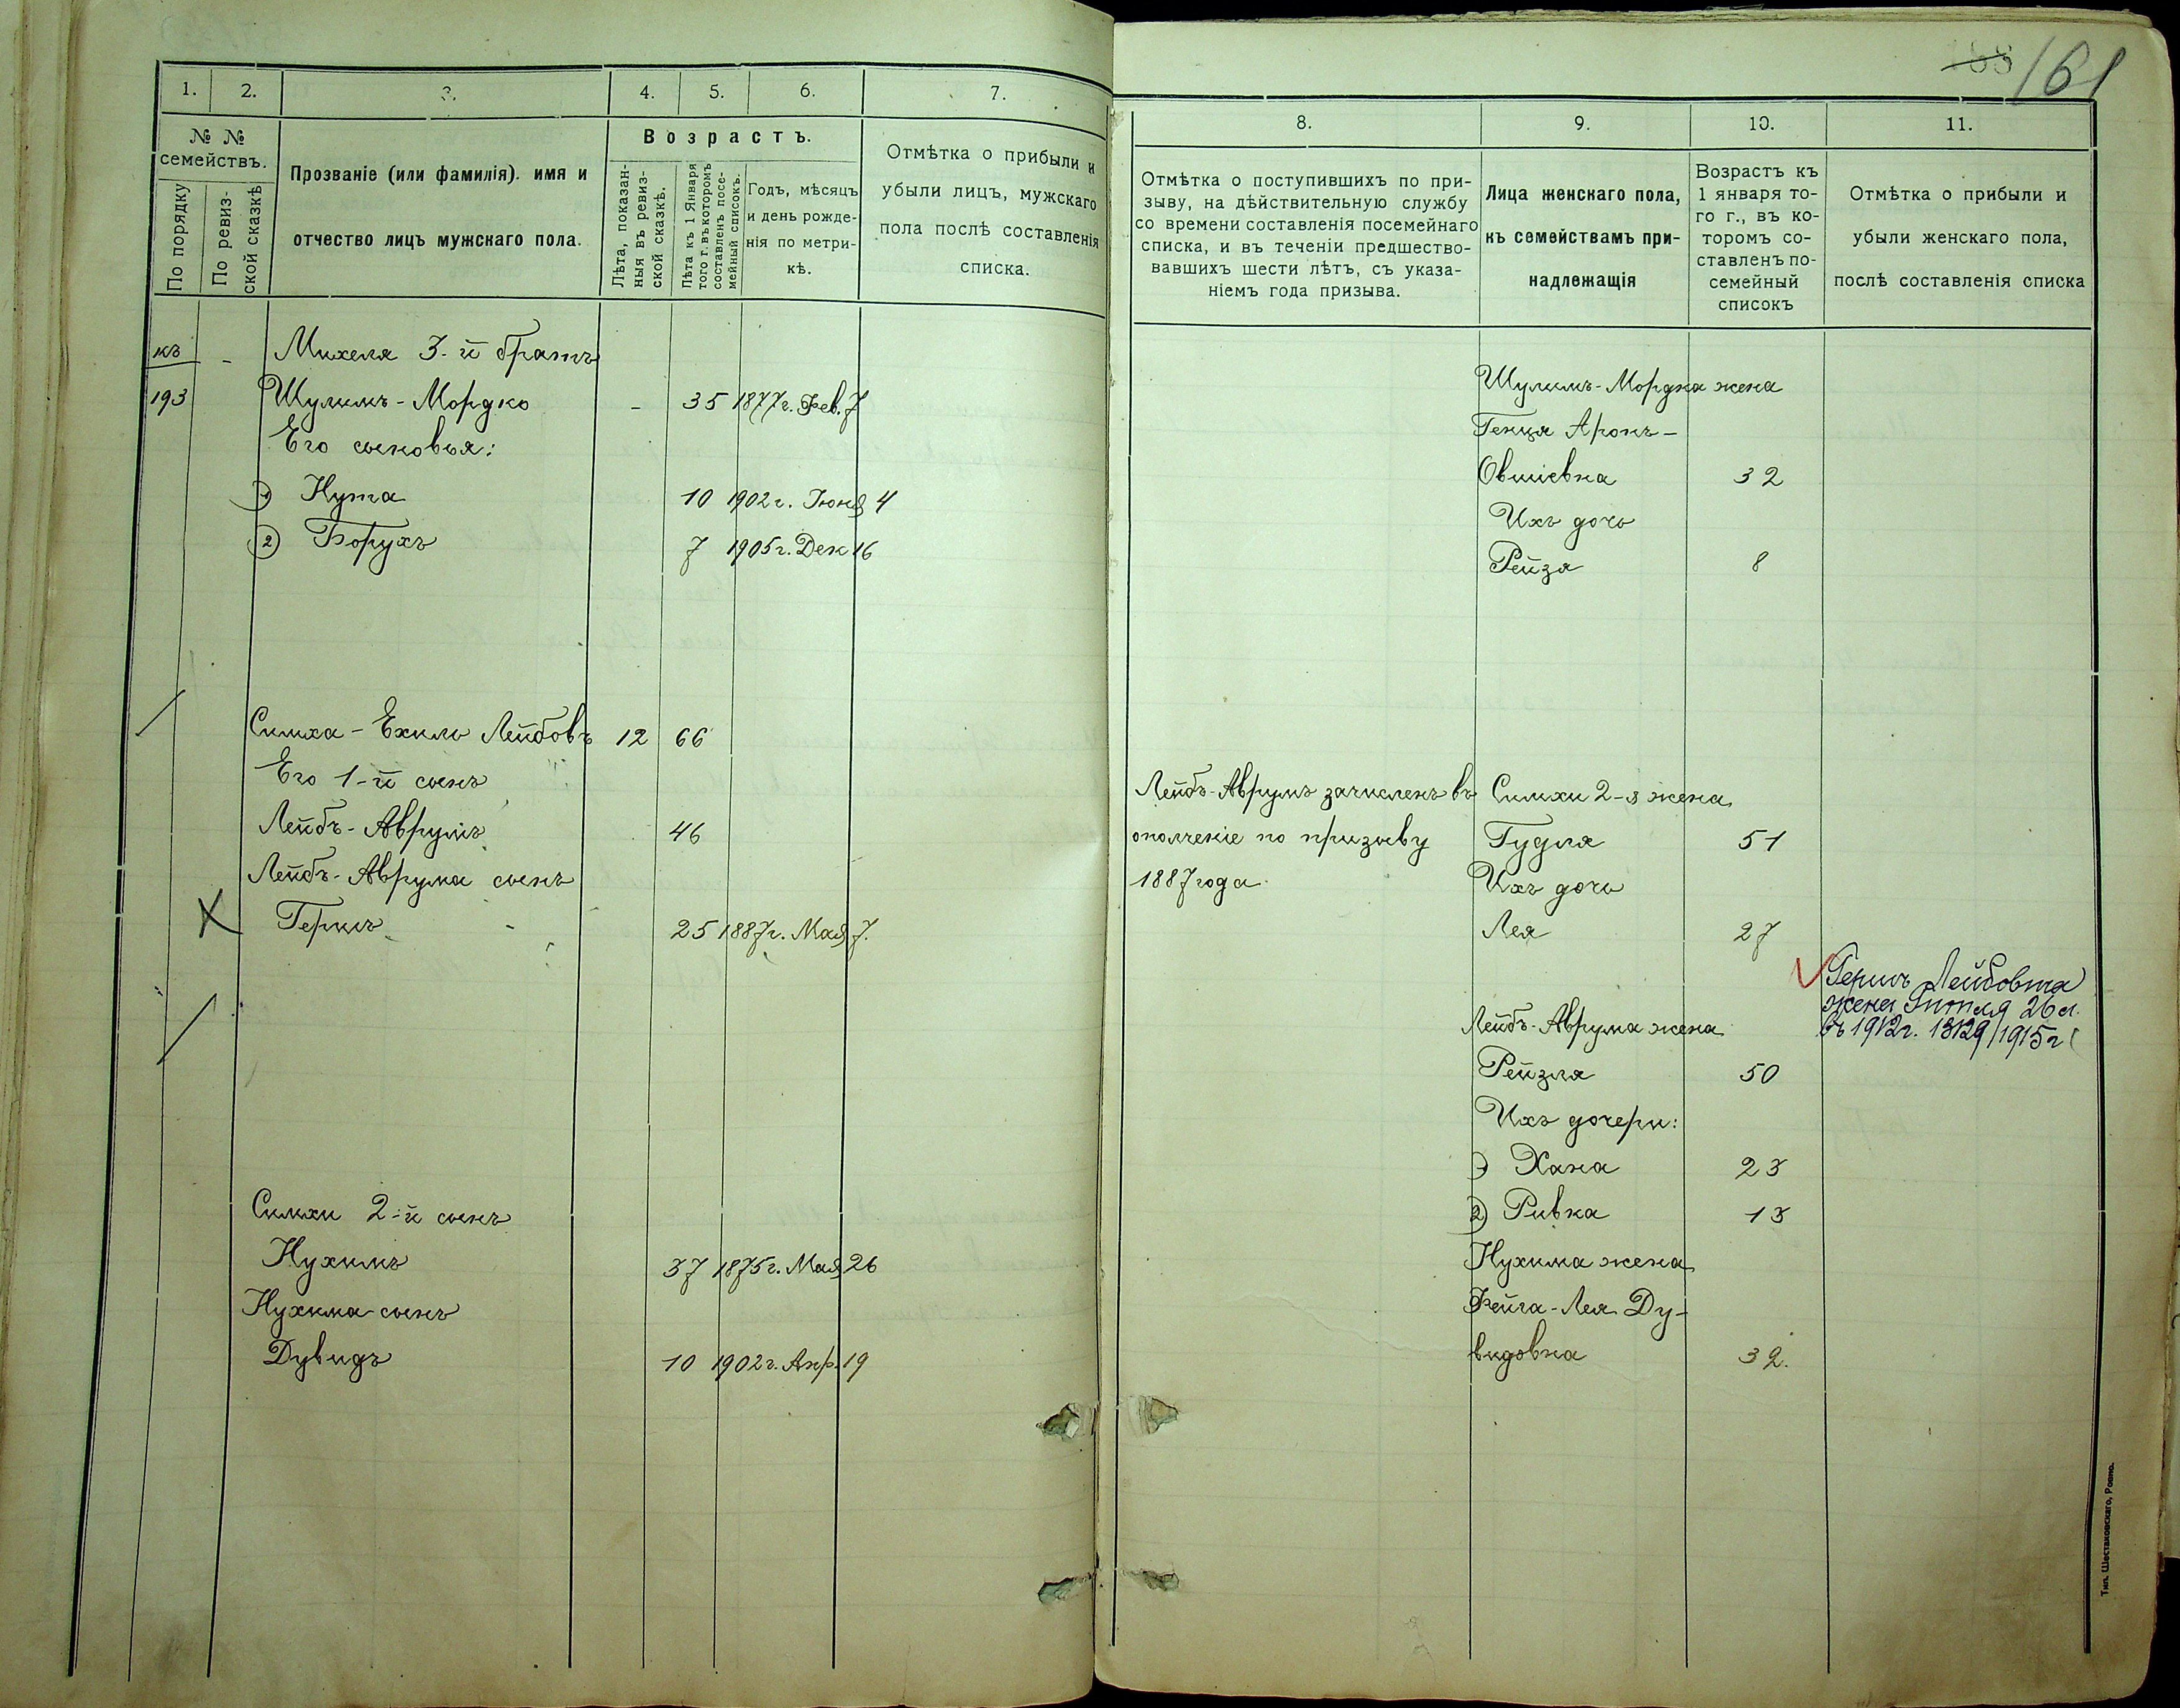 1. 2. 3. 4. 5. 6. 7.
№ №
семействъ.
По порядку
По ревиз-
ской сказкѣ
Прозваніе (или фамилія). имя и
отчество лицъ мужскаго пола.
Возрастъ.
Лѣта, показан-
ныя въ ревиз-
ской сказкѣ.
Лѣта къ 1 Января
того г. въ которомъ
составленъ посе-
мейный списокъ.
Годъ, мѣсяцъ
и день рожде-
нія по метри-
кѣ.
Отмѣтка о прибыли и
убыли лицъ, мужскаго
пола послѣ составленія
списка.
къ - Михеля 3-й братъ
193 Шулимъ-Мордко - 35 1877г. Фев. 7
Его сыновья:
1) Нута 10 1902г. Іюня 4
2) Борухъ 7 1905г. Дек 16
Симха-Ехиль Лейбовъ 12 66
Его 1-й сынъ
Лейбъ-Аврумъ 46
Лейбъ-Аврума сынъ
Гершъ 25 1887г. Мая 7.
Симхи 2-й сынъ
Нухимъ 37 1875г. Мая 26
Нухима сынъ
Дувидъ 10 1902г. Апр. 19
161
8. 9. 10. 11.
Отмѣтка о поступившихъ по при-
зыву, на дѣйствительную службу
со времени составленія посемейнаго
списка, и въ теченіи предшество-
вавшихъ шести лѣтъ, съ указа-
ніемъ года призыва.
Лица женскаго пола,
къ семействамъ при-
надлежащія
Возрастъ къ
1 января то-
го г., въ ко-
торомъ со-
ставленъ по-
семейный
списокъ
Отмѣтка о прибыли и
убыли женскаго пола,
послѣ составленія списка
Шулимъ-Мордка жена
Генця Аронъ-
Овшіевна 32
Ихъ дочь
Рейзя 8
Лейбъ-Аврумъ зачисленъ въ Симхи 2-я жена
ополченіе по призыву Гудля 51
1887 года Ихъ дочь
Лея 27
Гершъ Лейбовича
жена 26 л.
въ 1912г. 1915г
Лейбъ-Аврума жена
Рейзля 50
Ихъ дочери:
1) Хана 23
2) Ривка 13
Нухима жена
Фейга-Лея Ду-
видовна 32.
Тип. Шестаковскаго, Ровно.